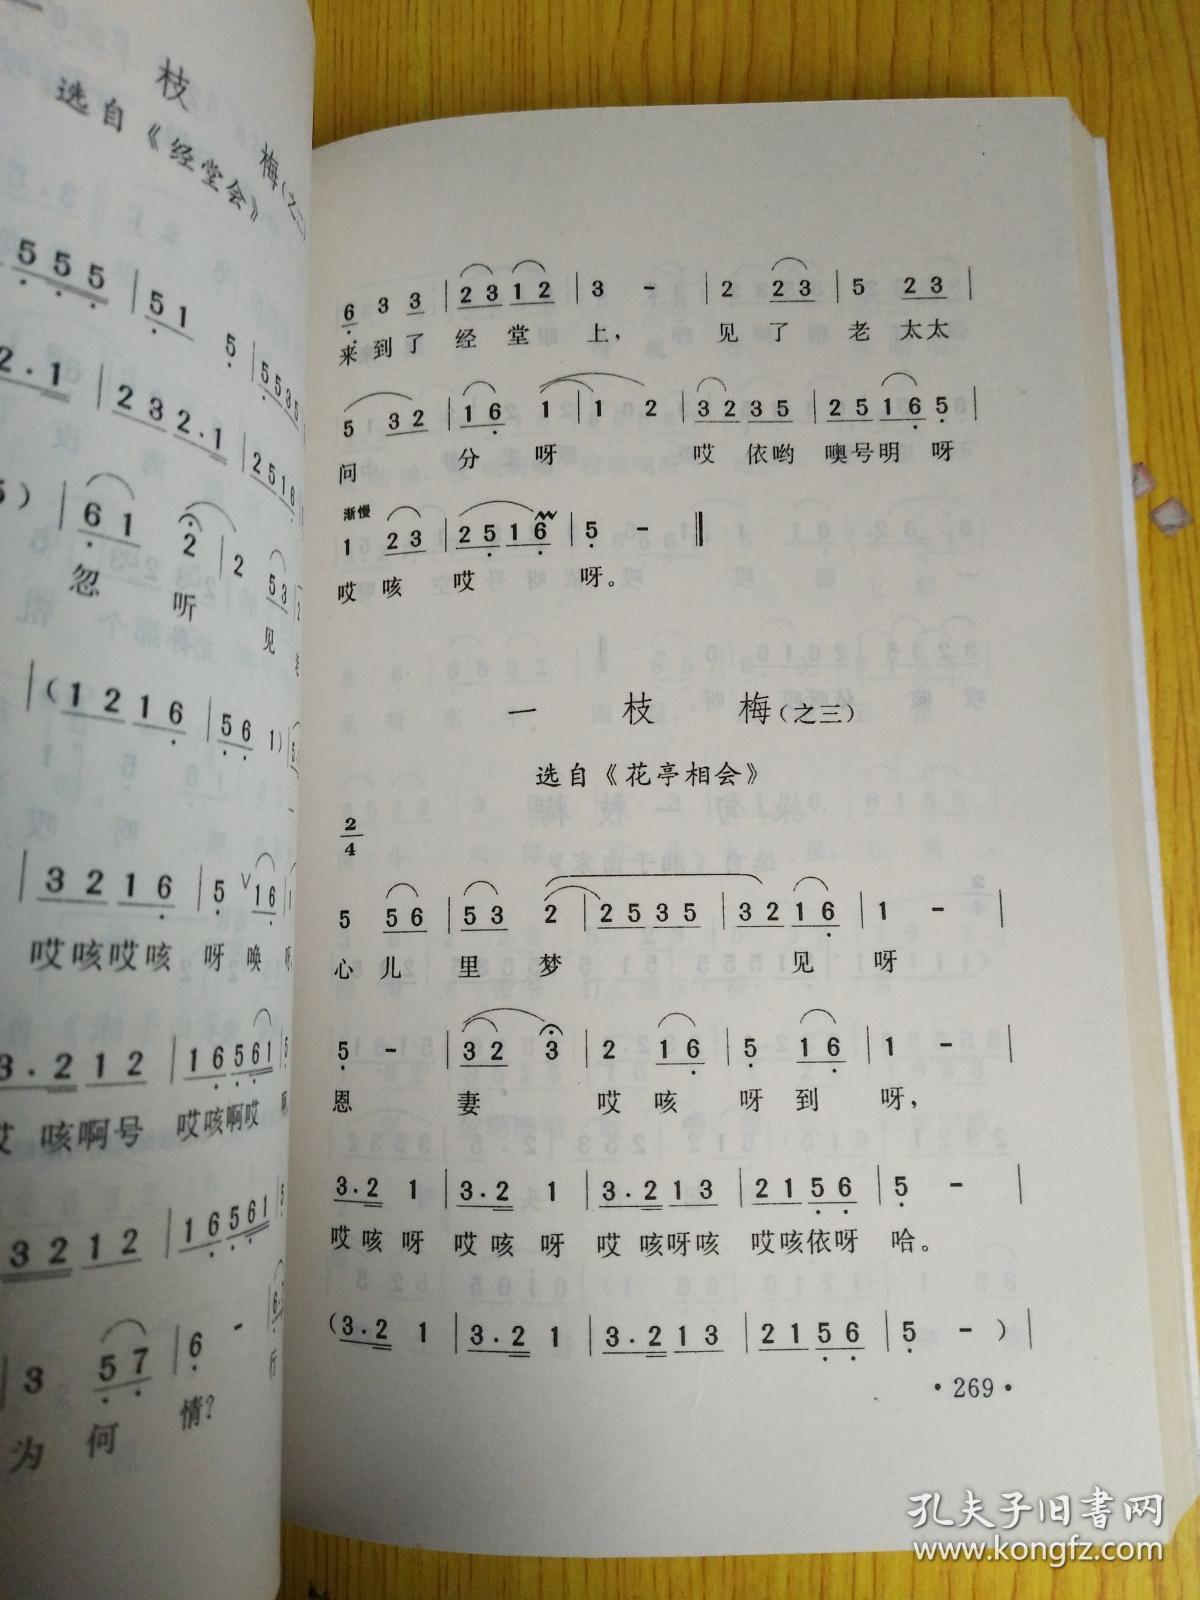 枝 梅(之二
选自《经堂会》
5 5 5 | 5 1 5 | 5 5 3 5
2 . 1 | 2 3 2 . 1 | 2 5 1 6
5) | 6 1 2 | 2 5 3
忽 听 见 老
| (1 2 1 6 | 5 6 1) |
| 3 2 1 6 | 5 ∨ 1 6 |
哎咳哎咳 呀 唤 呀
3 . 2 1 2 | 1 6 5 6 1 | 5
咳啊号 哎咳啊哎
3 2 1 2 | 1 6 5 6 1 | 5
3 5 7 | 6 -
为 何 情? 行
6 3 3 | 2 3 1 2 | 3 - | 2 2 3 | 5 2 3 |
来到了 经 堂 上, 见了 老太太
5 3 2 | 1 6 1 | 1 2 | 3 2 3 5 | 2 5 1 6 5 |
问 分 呀 哎 依哟 噢号明 呀
渐慢
1 2 3 | 2 5 1 6 | 5 - ‖
哎 咳 哎 呀。
一 枝 梅(之三)
选自《花亭相会》
2/4
5 5 6 | 5 3 2 | 2 5 3 5 | 3 2 1 6 | 1 - |
心儿 里 梦 见 呀
5 - | 3 2 3 | 2 1 6 | 5 1 6 | 1 - |
恩 妻 哎 咳 呀到 呀,
3 . 2 1 | 3 . 2 1 | 3 . 2 1 3 | 2 1 5 6 | 5 - |
哎咳呀 哎咳 呀 哎 咳呀咳 哎咳依呀 哈。
(3 . 2 1 | 3 . 2 1 | 3 . 2 1 3 | 2 1 5 6 | 5 - ) |
·269·
孔夫子旧书网
www.kongfz.com